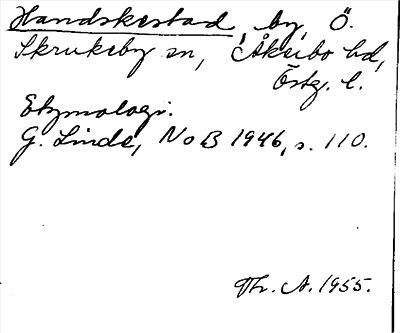 Handskestad, by, Ö.
Skrukeby sn, Åkerbo hd,
Östg. l.
Etymologi.
G. Linde, NoB 1946, s. 110.
Th. A. 1955.